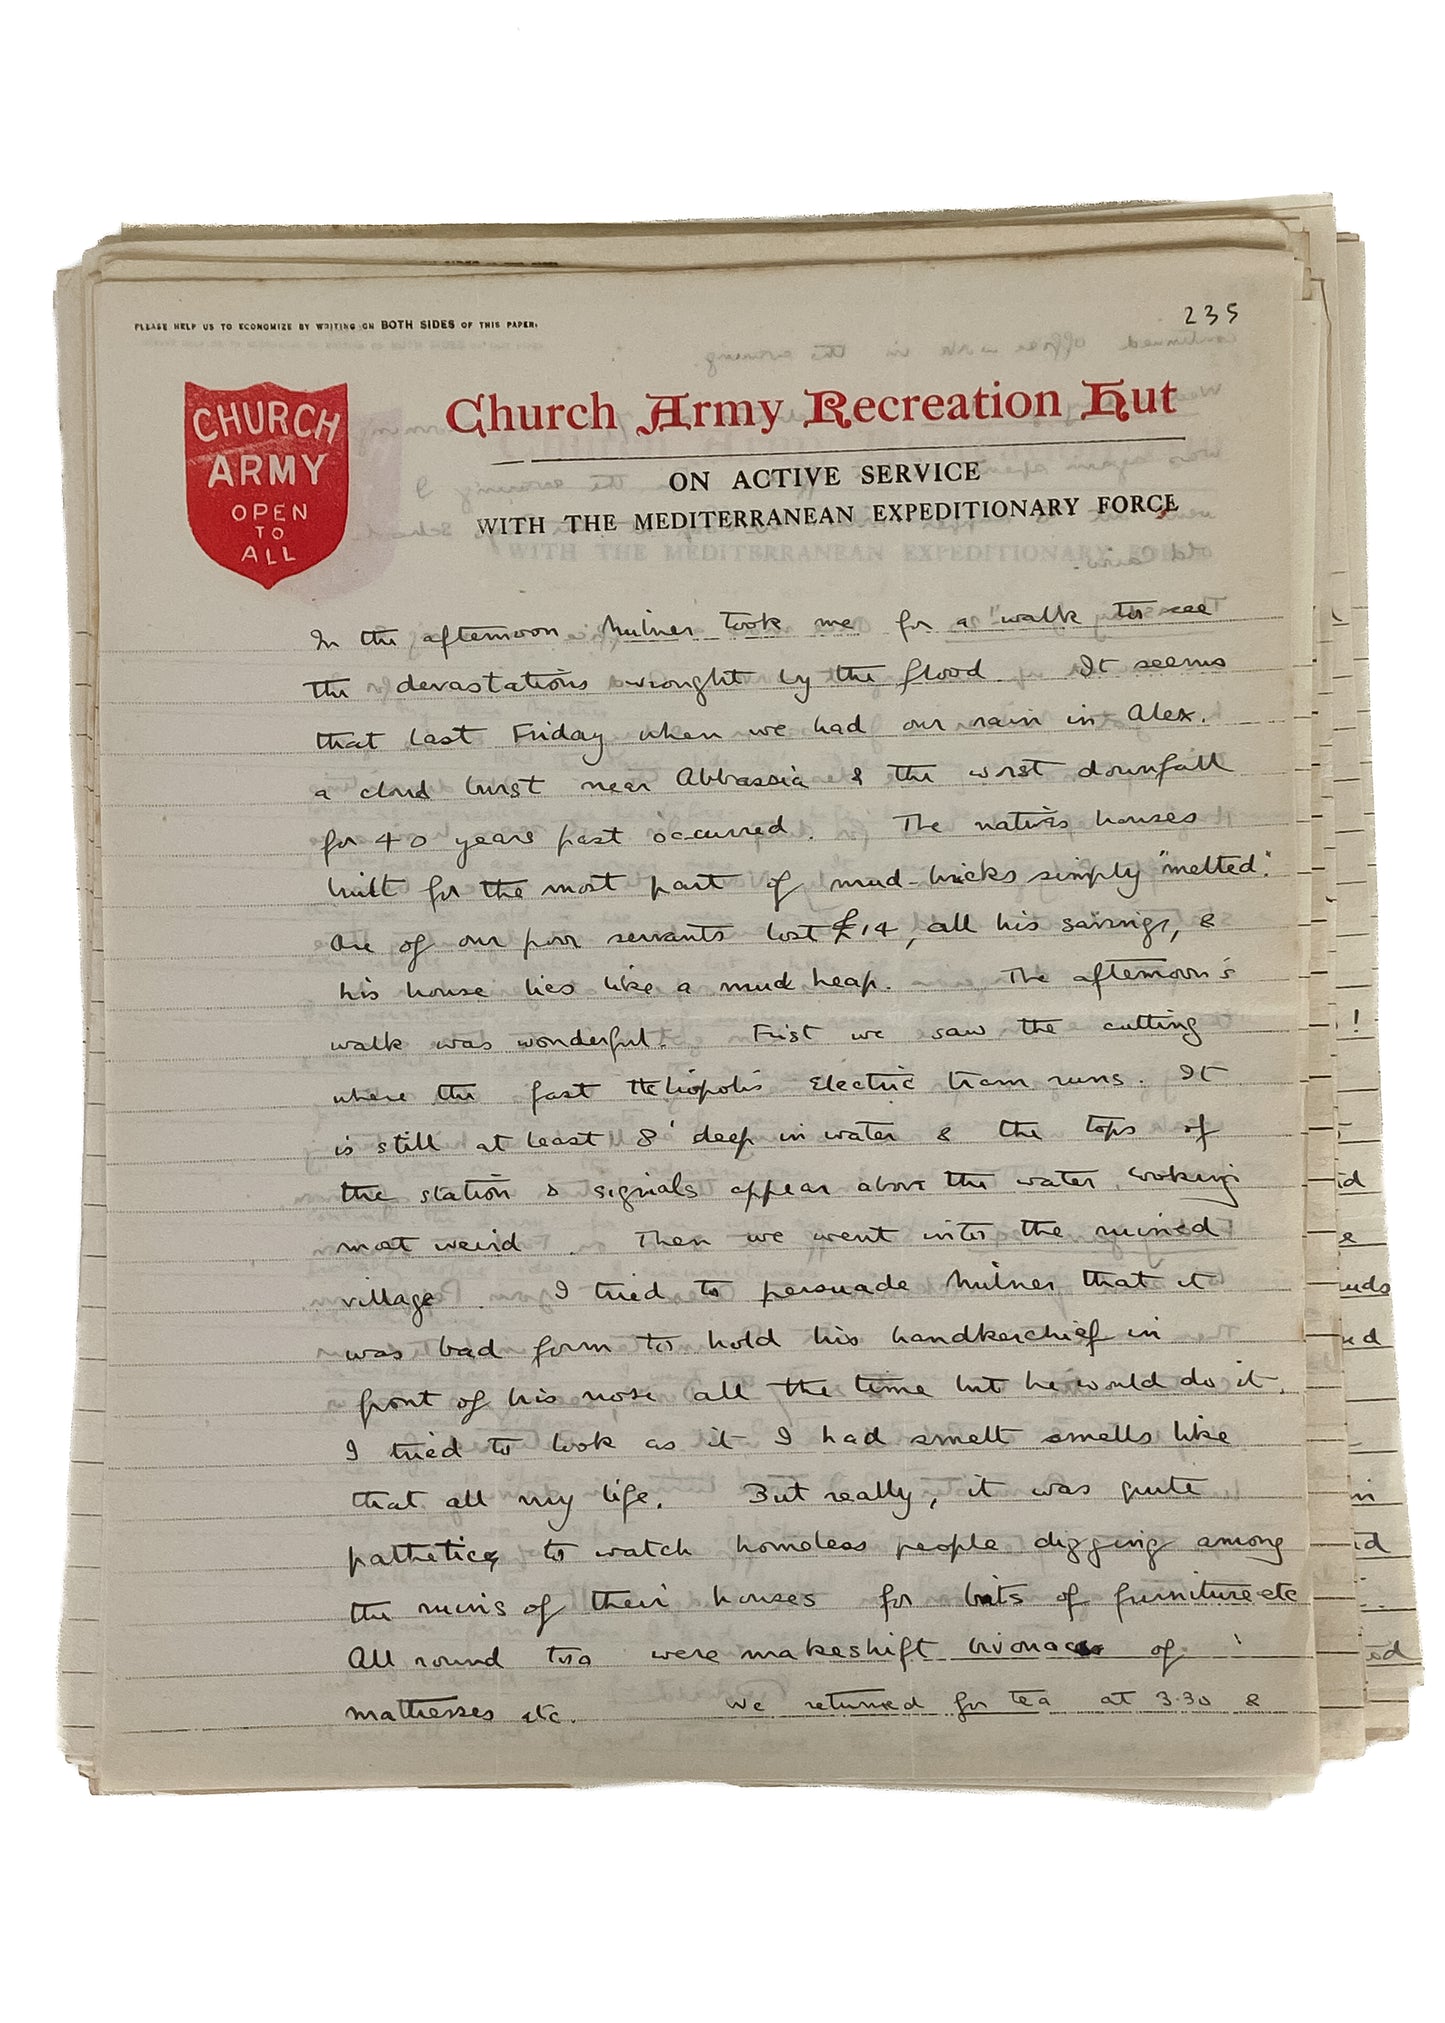 PLEASE HELP US TO ECONOMIZE BY WRITING ON BOTH SIDES OF THIS PAPER.
235
CHURCH
ARMY
OPEN
TO
ALL
Church Army Recreation Hut
ON ACTIVE SERVICE
WITH THE MEDITERRANEAN EXPEDITIONARY FORCE
In the afternoon Milner took me for a walk to see
the devastations wrought by the flood. It seems
that last Friday when we had our rain in Alex.
a cloud burst near Abbassia & the worst downfall
for 40 years past occurred. The natives houses
built for the most part of mud-bricks simply "melted".
One of our poor servants lost £14, all his savings, &
his house lies like a mud heap. The afternoon's
walk was wonderful. First we saw the cutting
where the fast Heliopolis Electric tram runs. It
is still at least 8' deep in water & the tops of
the station & signals appear above the water looking
most weird. Then we went into the ruined
village. I tried to persuade Milner that it
was bad form to hold his handkerchief in
front of his nose all the time but he would do it.
I tried to look as if I had smelt smells like
that all my life. But really, it was quite
pathetic, to watch homeless people digging among
the ruins of their houses for bits of furniture etc
All round too were makeshift bivouacs of
mattresses etc. We returned for tea at 3.30 &